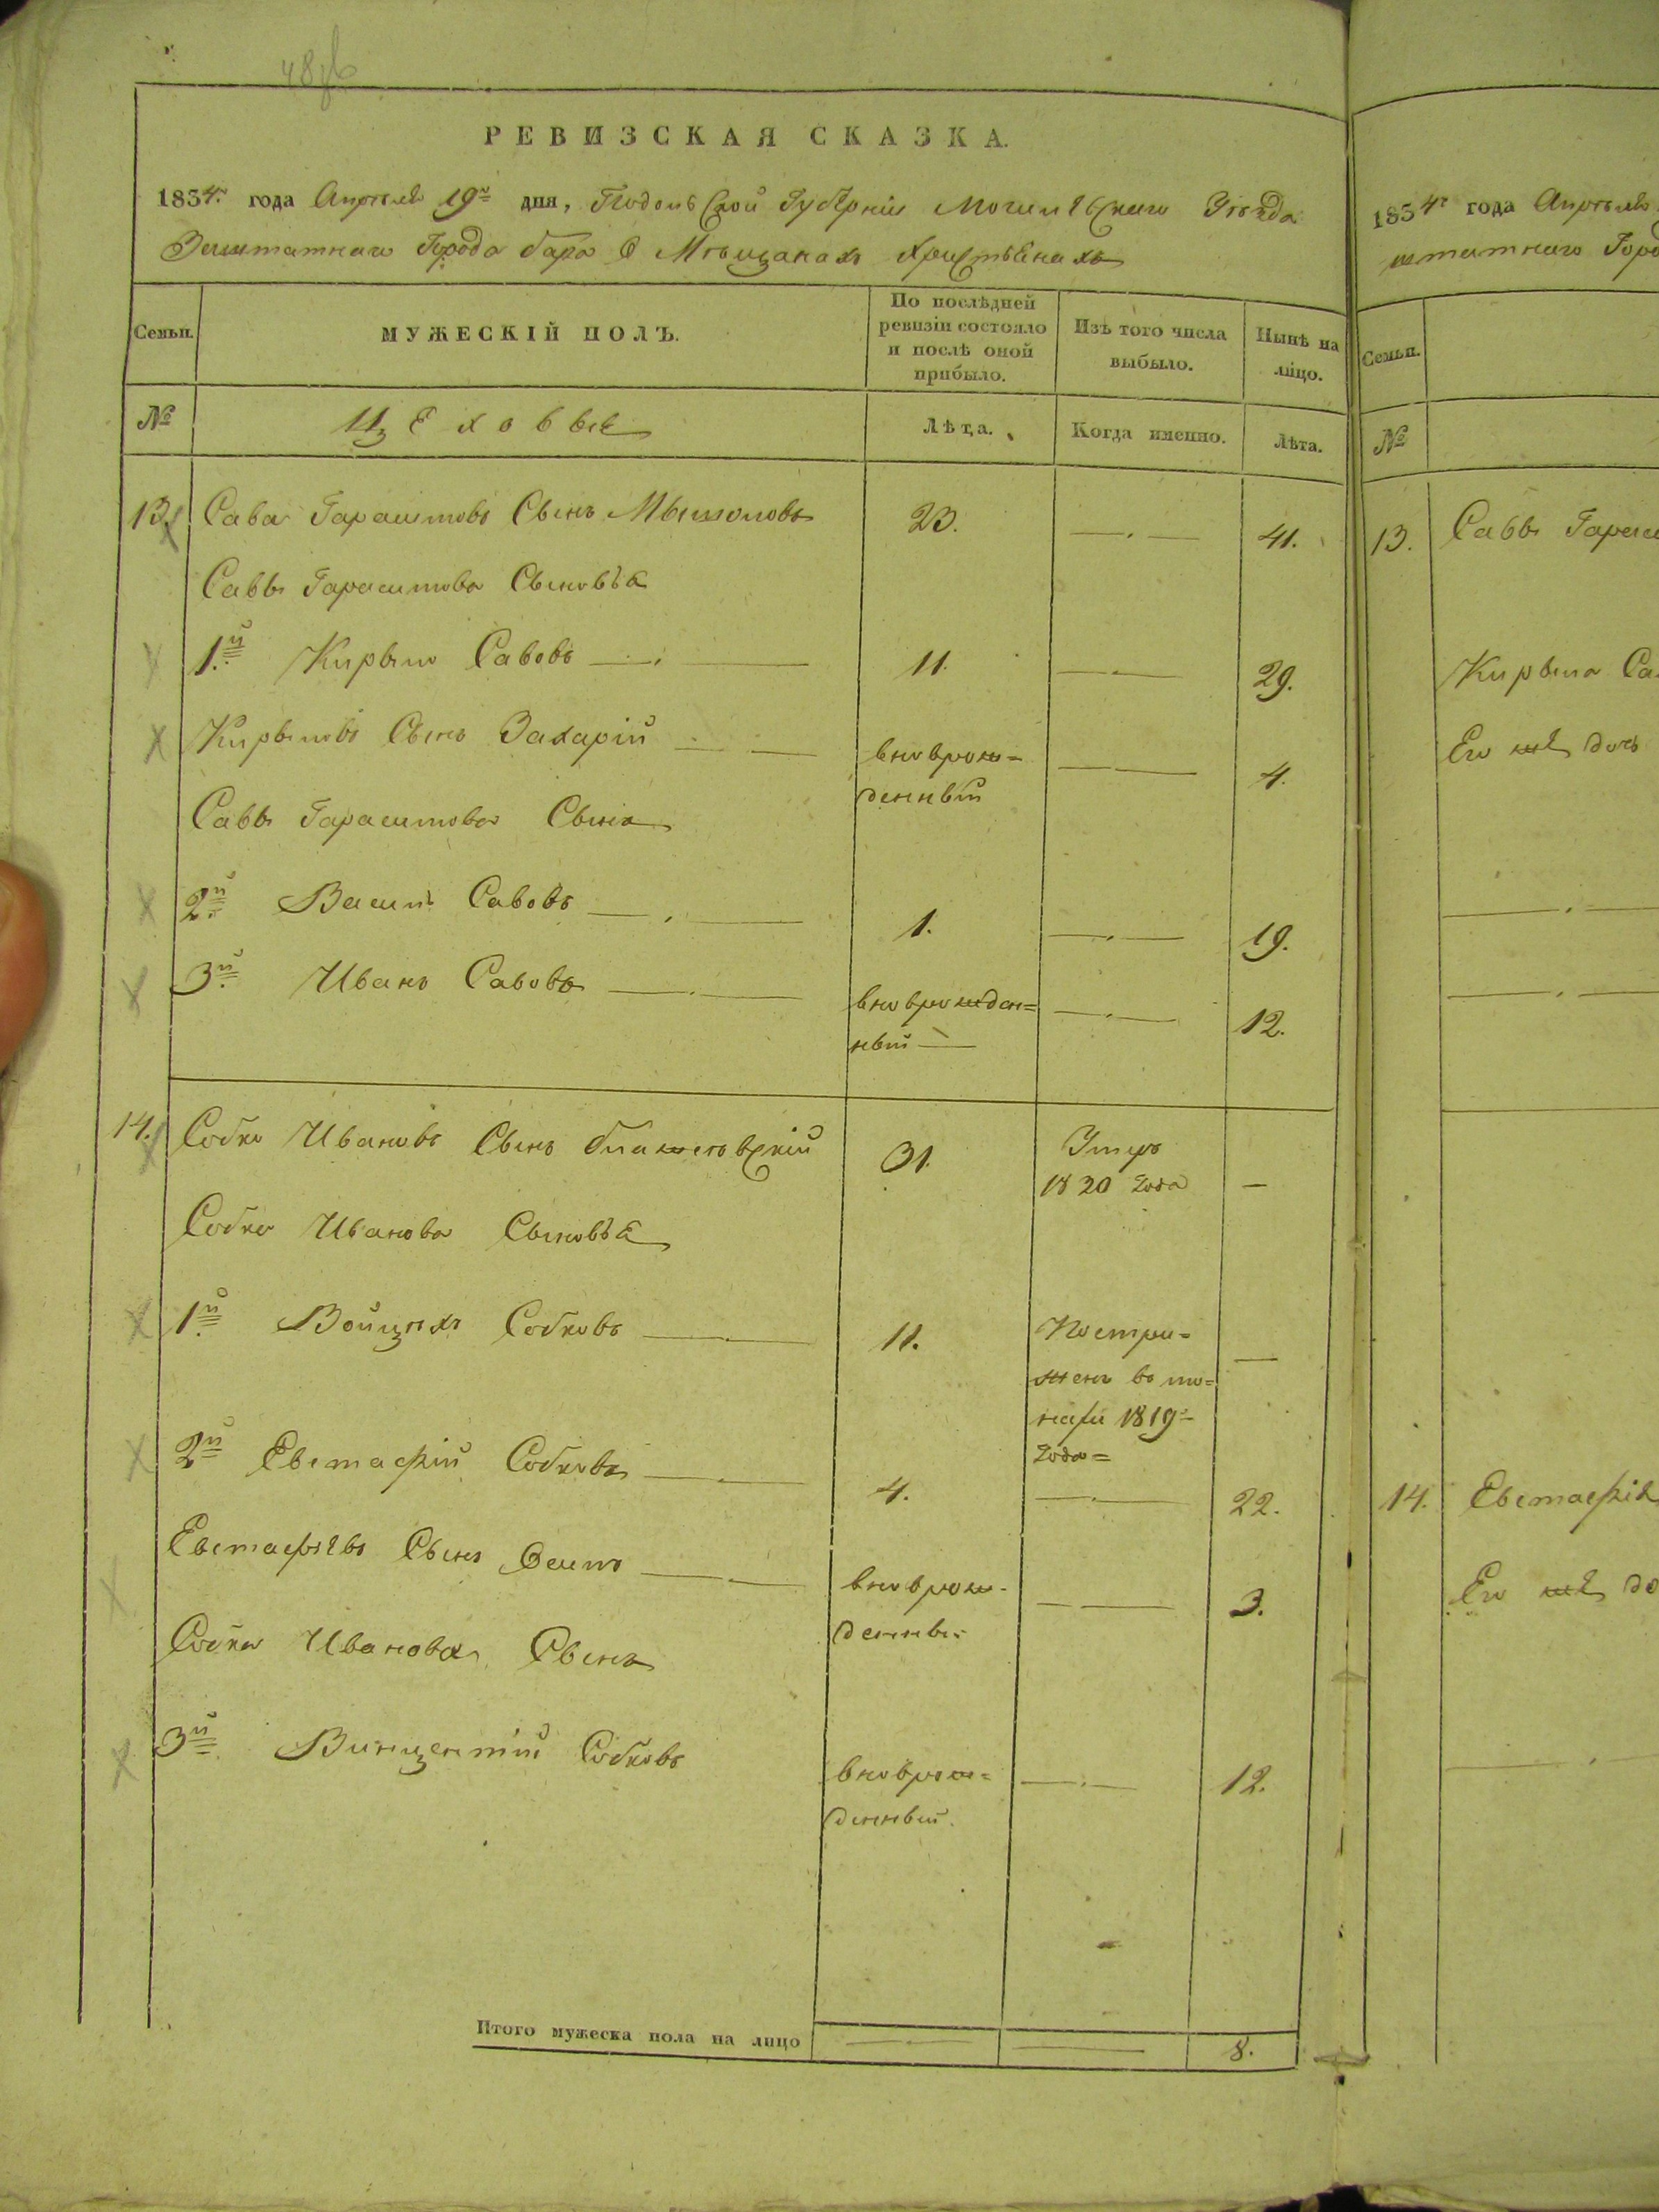 РЕВИЗСКАЯ СКАЗКА.
1834г. года Апреля 19го дня, Подольской Губерніи Могилевскаго Уезда
Заштатнаго Города бара о Мещанахъ Христьянахъ
Семьи.
МУЖЕСКІЙ ПОЛЪ.
По послѣдней
ревизіи состояло
и послѣ оной
прибыло.
Изъ того числа
выбыло.
Нынѣ на
лицо.
№
Цеховые
Лѣта.
Когда именно.
Лѣта.
13. Сава Гарасимовъ Сынъ 23. 41.
Саввы Гарасимова Сыновья
1й Кирыло Савовъ 11. 29.
Кирыловъ Сынъ Захарій вноврож= 4.
денный
Саввы Гарасимова Сына
2й Василь Савовъ 1. 19.
3й Иванъ Савовъ вноврожден= 12.
ный
14. Собко Ивановъ Сынъ 31. Умеръ —
1820 года
Собка Иванова Сыновья
1й Войцехъ Собковъ 11. Постри= —
женъ въ мо=
нахи 1819г
года=
2й Евстафій Собковъ 4. 22.
Евстафіевъ Сынъ вноврож- 3.
денны:
Собка Иванова Сына
3й Винцентій Собковъ вноврож= 12.
денный.
Итого мужеска пола на лицо 8.
1834г года Апреля
штатнаго Горо
Семьи.
№
13. Саввы Гарас
Кирыла Са
Его же дочь
14. Евстафія
Его же до